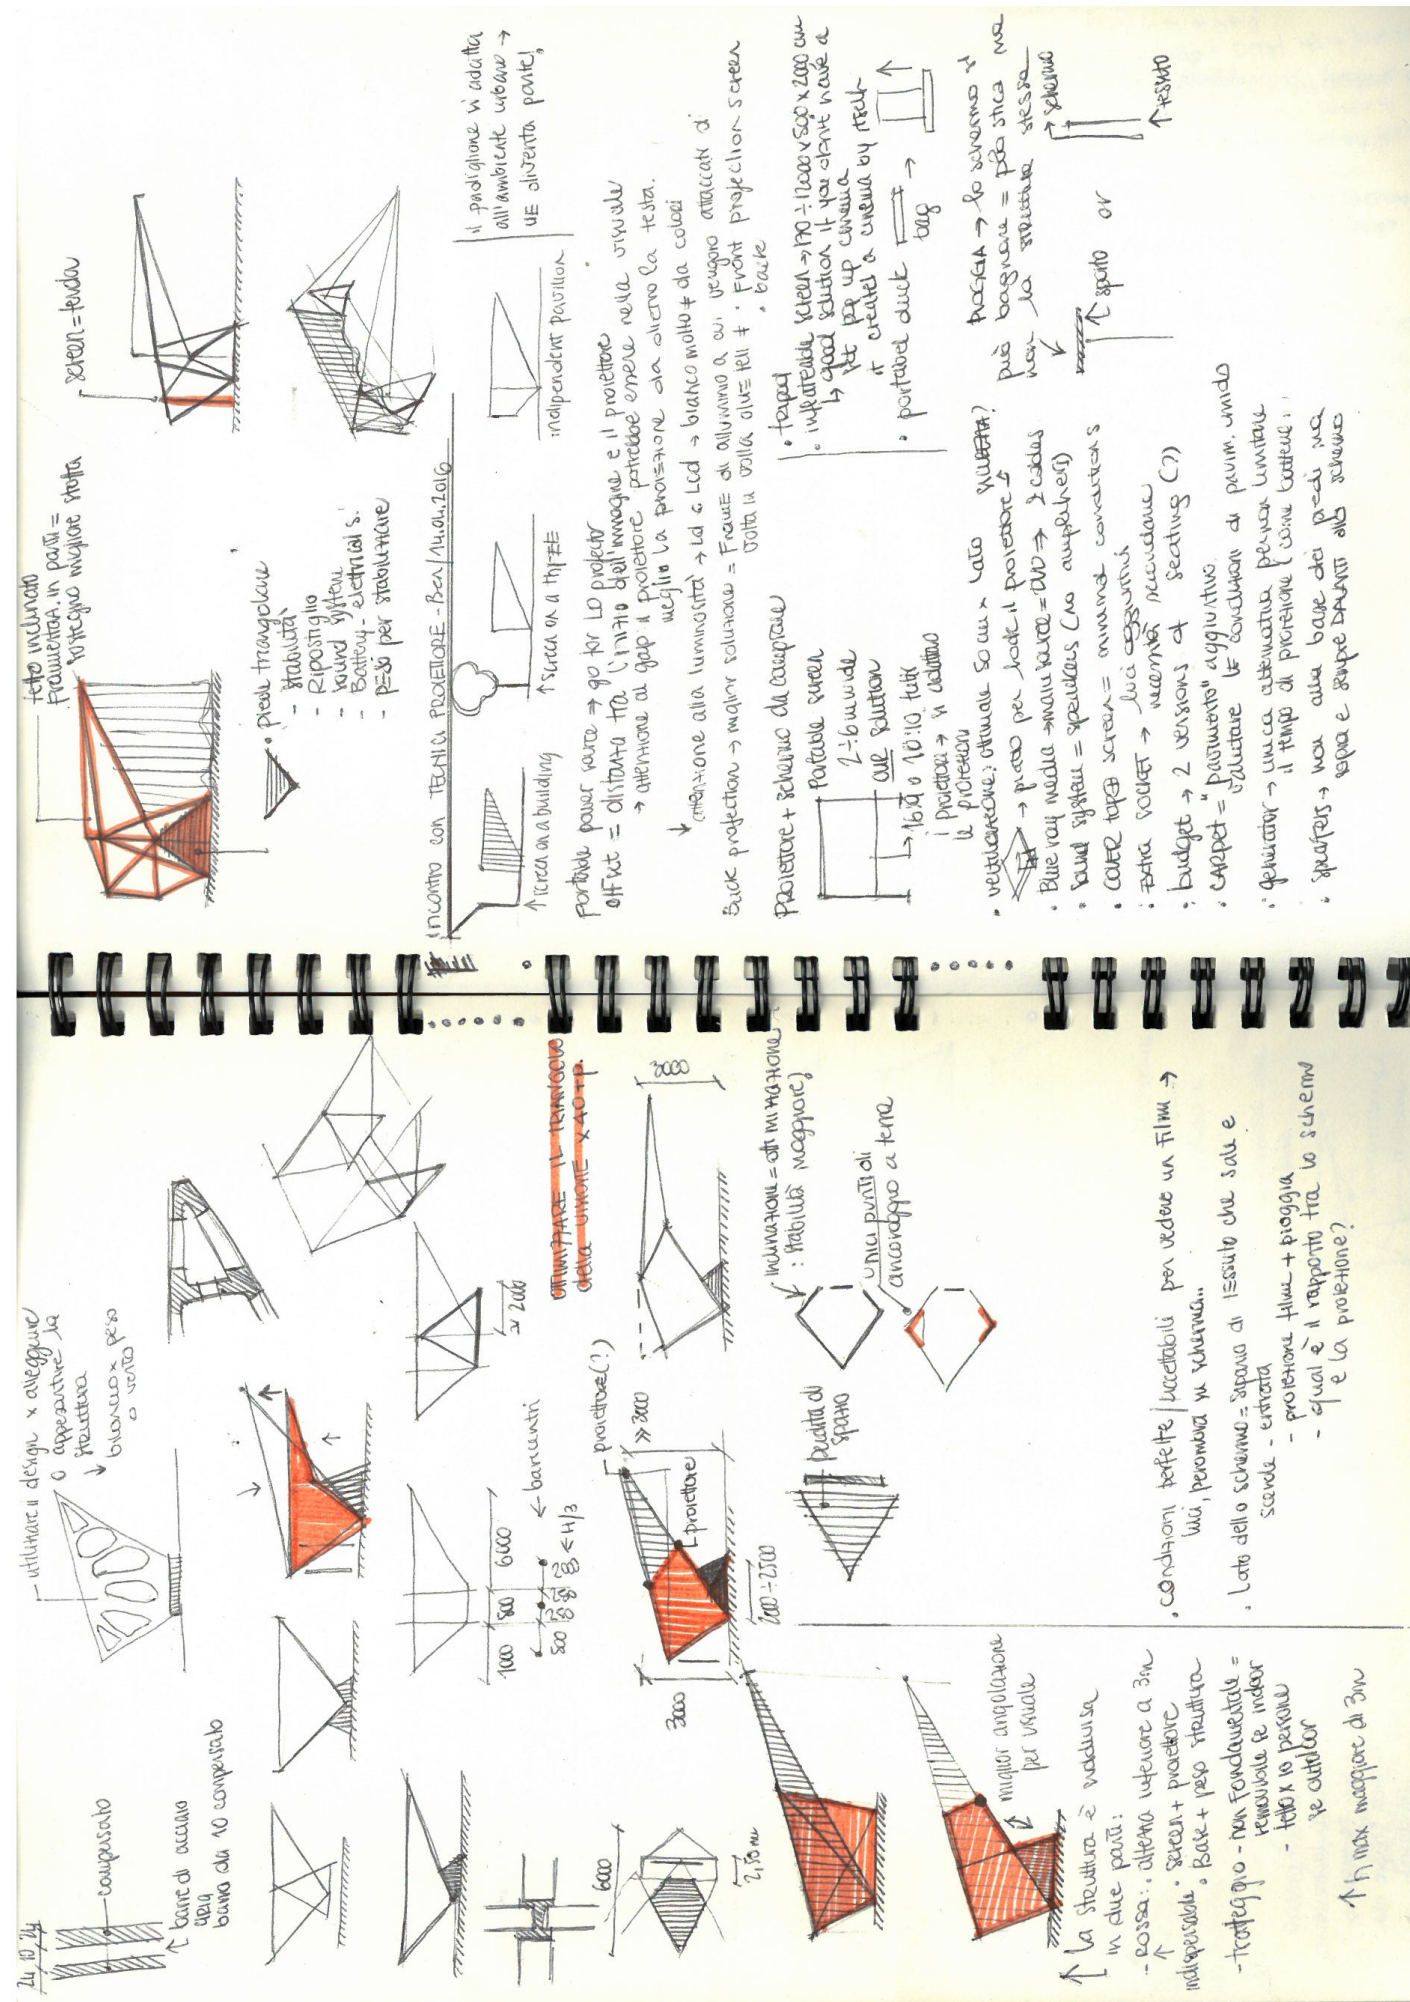 24/10/24
compensato
barre di acciaio
barra da 10 compensato
utilizzare il design x alleggerire
o appesantire la
struttura
↓
bilancio x peso
o vento
≥ 2000
1000 800 6000
← baricentri
← H/3
OTTIMIZZARE IL TRIANGOLO
della VISIONE x 40+p.
6000
2,50 m
3000
proiettore(?)
≫ 3000
proiettore
2000÷2500
3000
inclinazione = ottimizzazione x
: stabilità maggiore
perdita di
spazio
unici punti di
ancoraggio a terra
miglior angolazione
per visuale
↑ la struttura è suddivisa
in due parti:
- ROSSA: . altezza inferiore a 3m
indispensabile . screen + proiettore
. Base + peso struttura
- tratteggio - non fondamentale =
removibile se indoor
- tetto x 10 persone
se outdoor
↑ h max maggiore di 3m
. condizioni perfette / accettabili per vedere un film →
luci, penombra su schermo...
. Lato dello schermo = spazio di tessuto che sale e
scende - entrata
- proiezione film + pioggia
- qual è il rapporto tra lo schermo
e la proiezione?
tetto inclinato
FRAMMENTATA in parti =
sostegno migliore stoffa
. Piede triangolare
- stabilità
- Ripostiglio
- sound system
- Battery - elettrical s.
- pesi per stabilizzare
screen = tenda
incontro con TECNICA PROIETTORE - Ben / 14.01.2016
↑ screen on a building
↑ screen on a thrEE
indipendent pavilion
il padiglione si adatta
all'ambiente urbano →
NE diventa parte!
portable power source → go for LD projector
offset = distanza tra l'inizio dell'immagine e il proiettore
→ attenzione al gap il proiettore potrebbe essere nella visuale
meglio la proiezione da dietro la testa.
↓ attenzione alla luminosità → Ld e Lcd → bianco molto ≠ da colori
Back projection → miglior soluzione = Frame di alluminio a cui vengono attaccati di
volta in volta due teli ≠ . Front projection screen
. back
PROIETTORE + schermo da comprare
Portable screen
2÷6m wide
one solution
→ 16:9 o 10:10 tutti
i proiettori → si adattano
le proiezioni
. tripod
. inflateable screen → 170÷12000 x 500 x 2000 cm
↳ good solution if you don't have a
yet pop up cinema
it created a cinema by itself
. portabel duck →
bag
. ventilazione: ottimale 50 cm x lato
→ piatto per lode il proiettore
. Blue ray media → main source = DVD → 2 codes
. Sound system = speakers (no amplifiers)
. COVER TOP screen = minimal conditions
. extra socket → luci aggiuntive
necessità secondarie
. budget → 2 versions of seating (?)
. CARPET = "pavimento" aggiuntivo
valutare le condizioni di pavim. umido
. generator → unica alternativa per non limitare
il tempo di proiezione (come batterie)!
. speakers → non alla base dei piedi ma
sopra e sempre DAVANTI allo schermo
PIOGGIA → lo schermo si
può bagnare = plastica ma
non la struttura stessa
→ schermo
↑ sporto
or
↑ tessuto